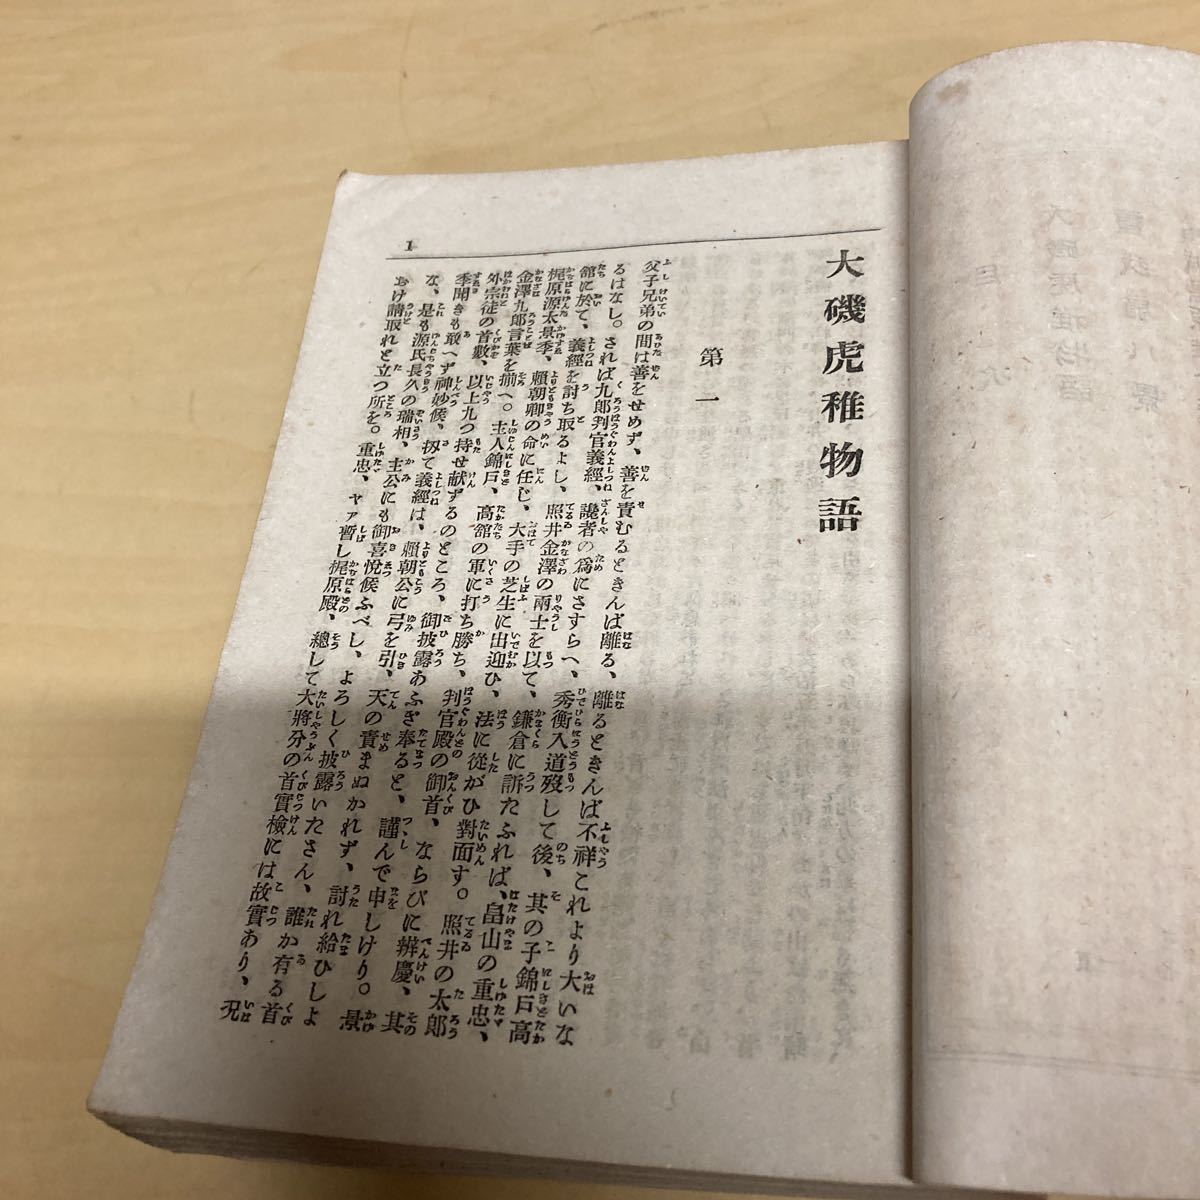 大磯虎稚物語
第一
父子兄弟の間は善をせめず、善を責むるときんば離る、離るときんば不祥これより大いな
るはなし。されば九郎判官義經、讒者の爲にさすらへ、秀衡入道歿して後、其の子錦戸高
舘に於て、義經を討ち取るよし、照井金澤の兩士を以て、鎌倉に訴たふれば、畠山の重忠、
梶原源太景季、賴朝卿の命に任じ、大手の芝生に出迎ひ、法に從がひ對面す。照井の太郎
金澤九郎言葉を揃へ。主人錦戸、高舘の軍に打ち勝ち、判官殿の御首、ならびに辨慶、其
外宗徒の首數、以上九つ持せ献ずるのところ、御披露あふぎ奉ると、謹んで申しけり。景
季聞きも敢へず神妙候、扨て義經は、賴朝公に弓を引、天の責まぬかれず、討れ給ひしよ
な、是も源氏長久の瑞相、主公にも御喜悅候ふべし、よろしく披露いたさん、誰か有る首
おけ請取れと立つ所を。重忠、ヤァ暫し梶原殿、總して大將分の首實檢には故實あり、况
1